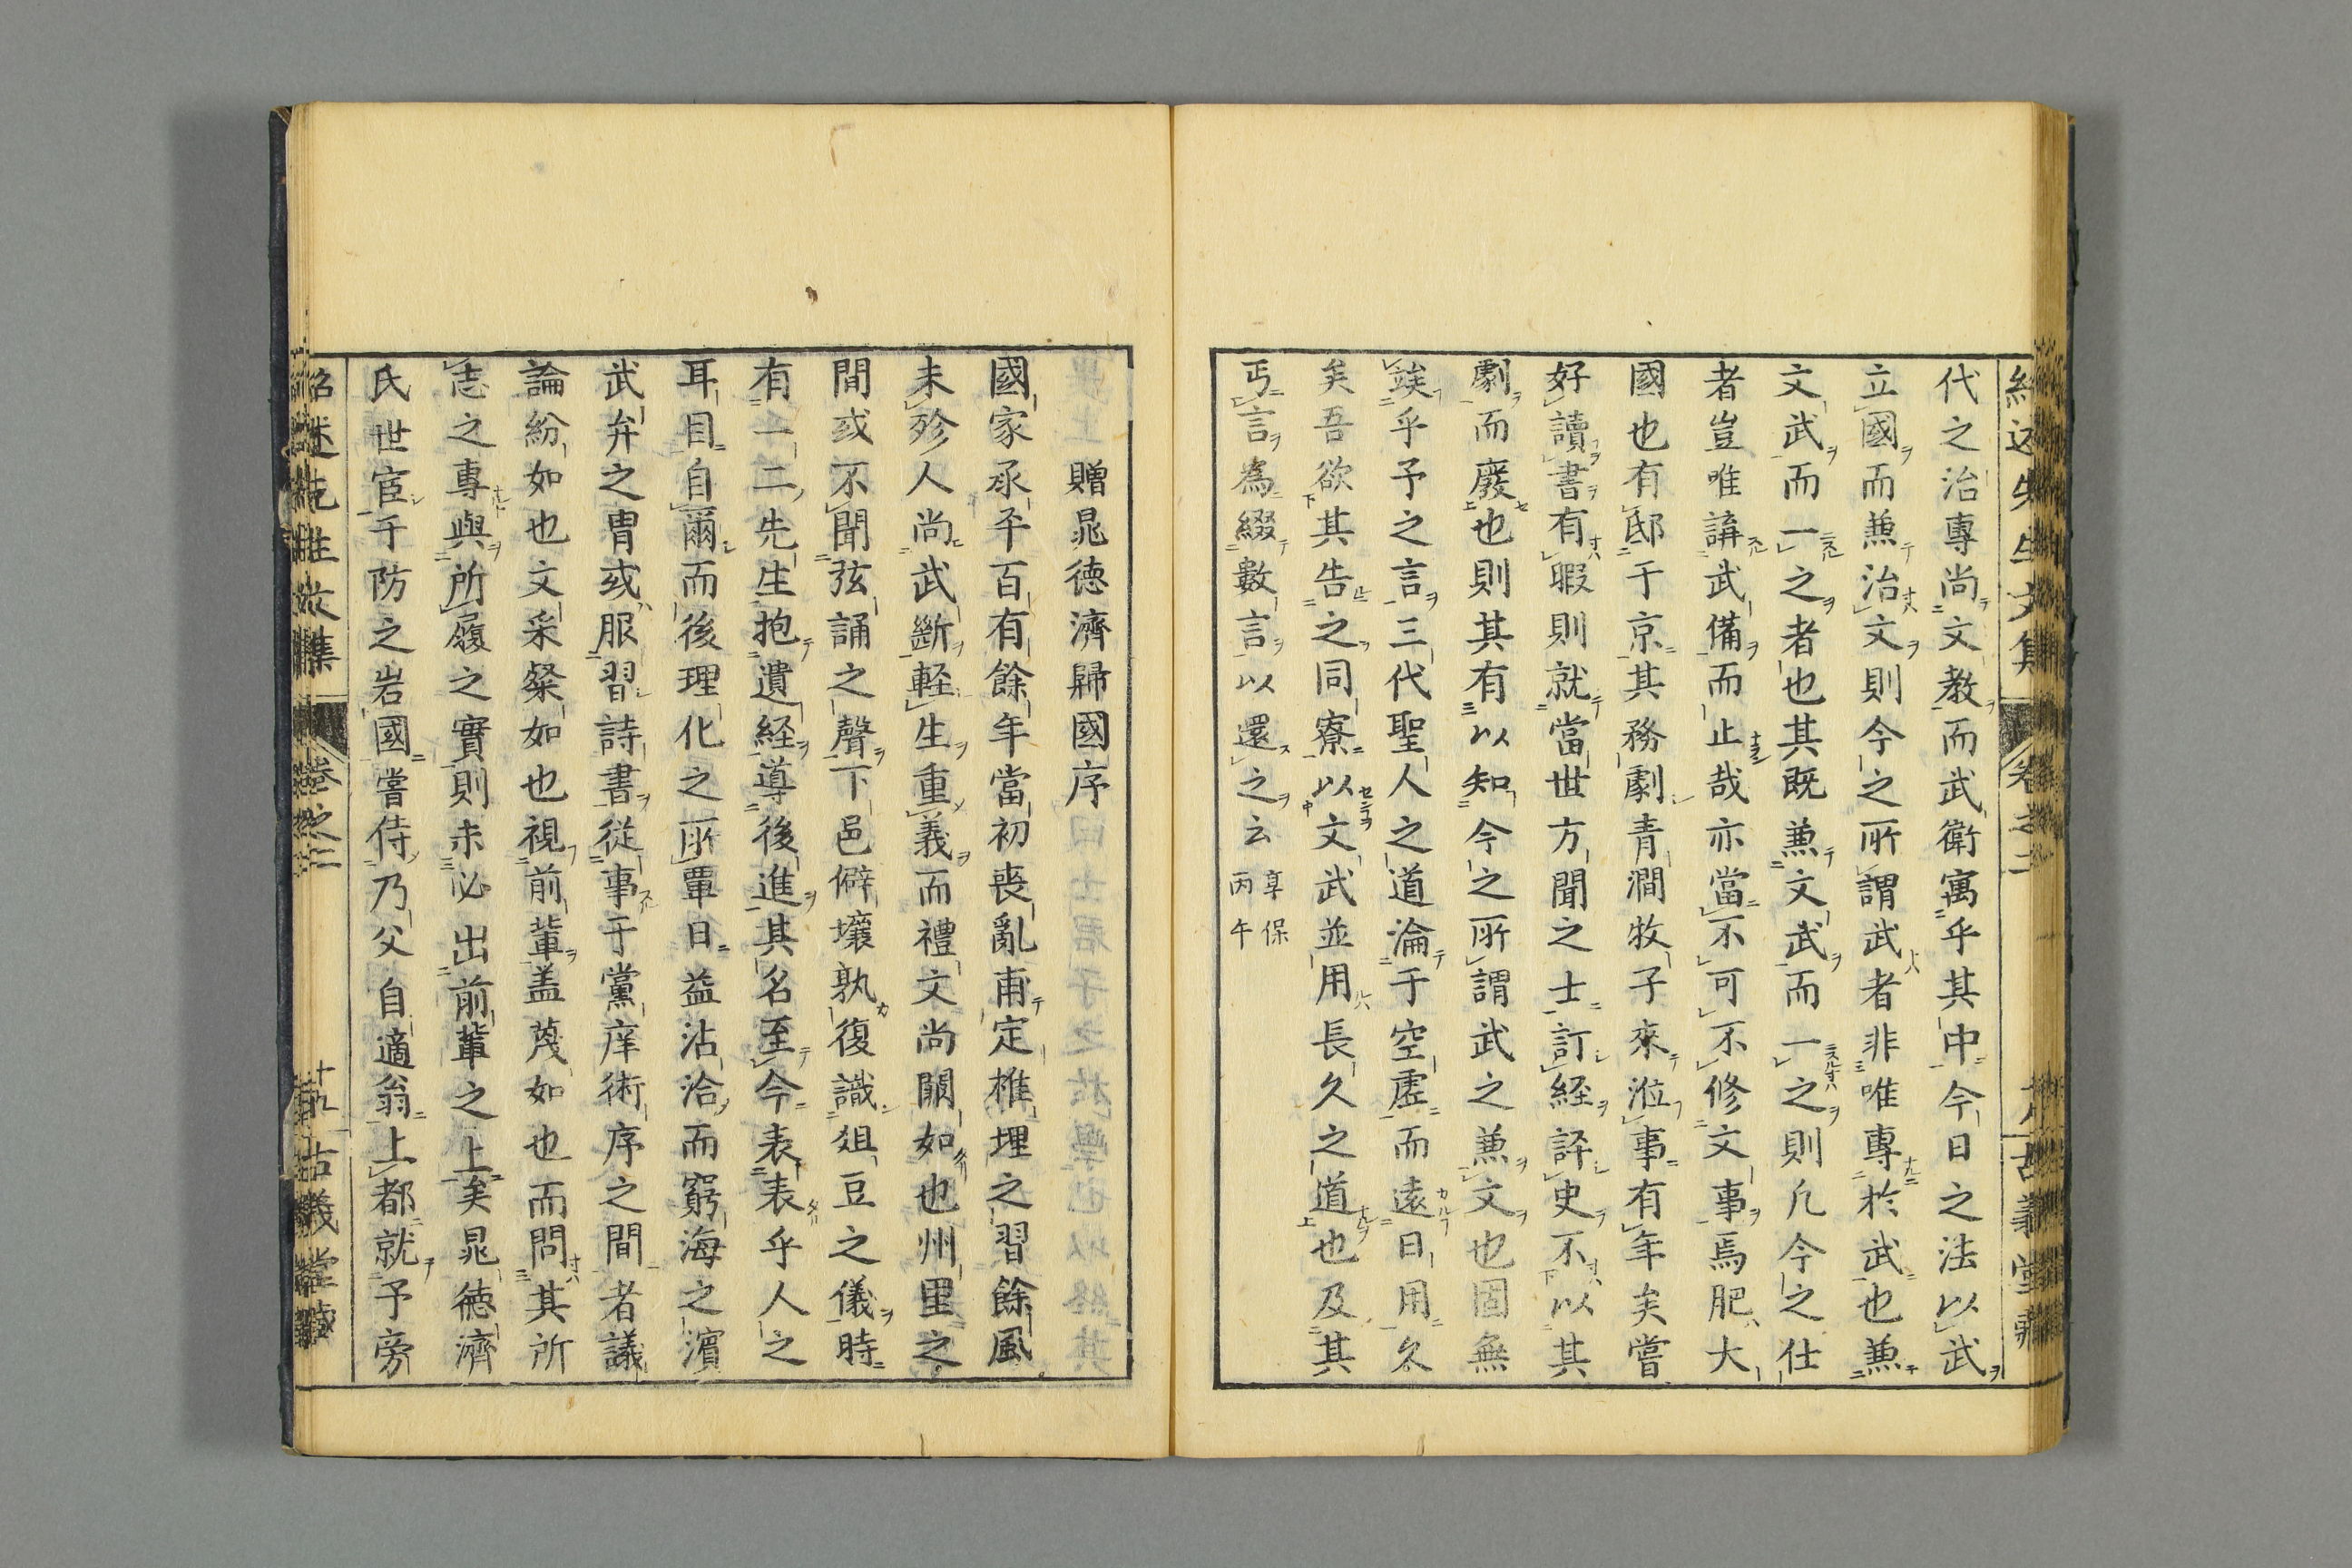 代之治專尚文教而武衛寓乎其中今日之法以武
立國而兼治文則今之所謂武者非唯專於武也兼
文武而一之者也其既兼文武而一之則凡今之仕
者豈唯講武備而止哉亦當不可不修文事焉肥大
國也有邸于京其務劇青澗牧子來涖事有年矣嘗
好讀書有暇則就當世方聞之士訂経評史不以其
劇而廢也則其有以知今之所謂武之兼文也固無
竢乎予之言三代聖人之道淪于空虛而遠日用久
矣吾欲其告之同寮以文武並用長久之道也及其
丐言為綴數言以還之云 享保丙午
贈晁徳濟歸國序
國家承平百有餘年當初喪亂甫定椎埋之習餘風
未殄人尚武断輕生重義而禮文尚闕如也州里之
間或不聞弦誦之聲下邑僻壤孰復識俎豆之儀時
有一二先生抱遺経導後進其名至今表表乎人之
耳目自爾而後理化之所覃日益沾洽而窮海之濵
武弁之胄或服習詩書從事于黨庠術序之間者議
論紛如也文采粲如也視前輩盖蔑如也而問其所
志之專與所履之實則未必出前輩之上矣晁徳濟
氏世宦于防之岩國嘗侍乃父自適翁上都就予旁
紹述先生文集 卷之二 十九 古義堂藏